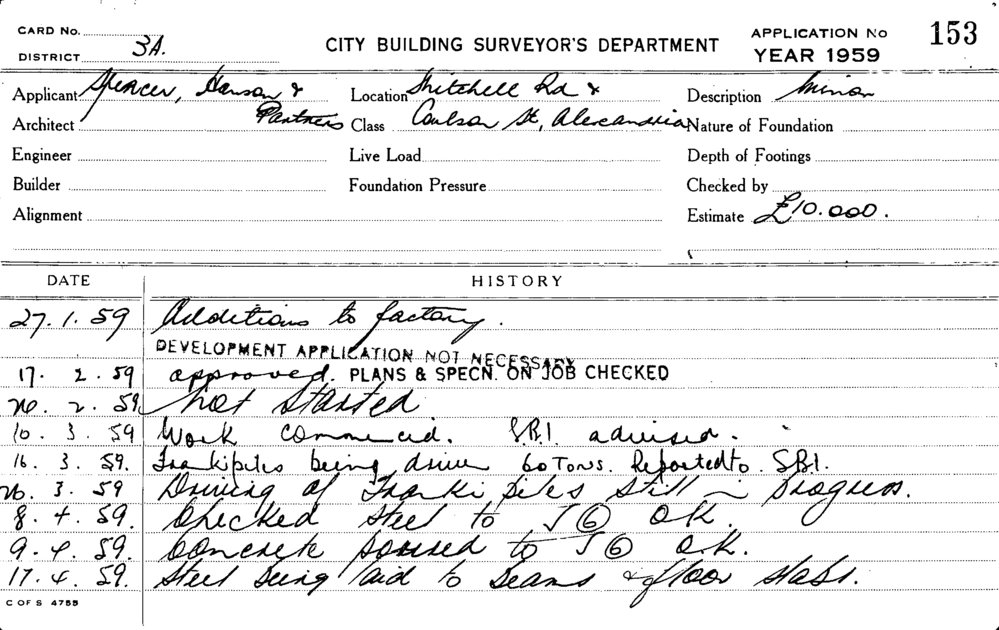 CARD No.
DISTRICT 3A.
CITY BUILDING SURVEYOR'S DEPARTMENT
APPLICATION No 153
YEAR 1959
Applicant Spencer, Hanson & Location Mitchell Rd & Description Minor
Architect Partners Class Coulson St, Alexandria Nature of Foundation
Engineer Live Load Depth of Footings
Builder Foundation Pressure Checked by
Alignment Estimate £10.000.
DATE HISTORY
27.1.59 Additions to factory.
DEVELOPMENT APPLICATION NOT NECESSARY
17. 2. 59 approved. PLANS & SPECN. ON JOB CHECKED
20. 2. 59 Not Started
10. 3. 59 Work commenced. S.B.I. advised.
16. 3. 59. Frankipiles being driven 60 Tons. Reported to S.B.I.
20. 3. 59 Driving of Franki piles still in progress.
8. 4. 59. Checked steel to 6 OK.
9. 4. 59. Concrete poured to 6 O.K.
17. 4. 59. Steel being laid to beams & floor slabs.
C OF S 4755